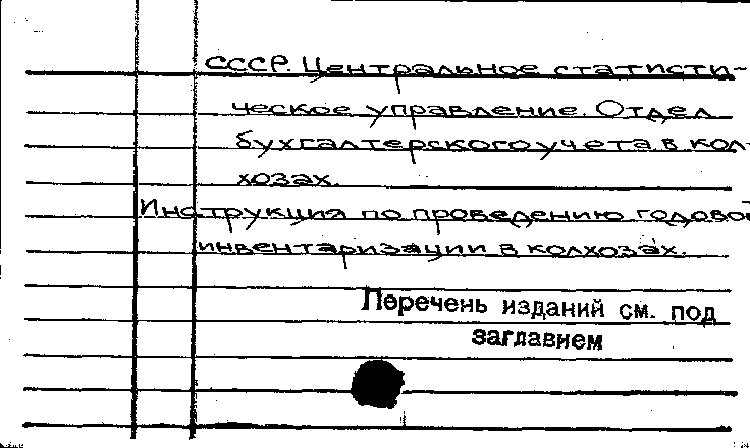 СССР. Центральное статисти-
ческое управление. Отдел
бухгалтерского учета в кол-
хозах.
Инструкция по проведению годовой
инвентаризации в колхозах.
Перечень изданий см. под
заглавием